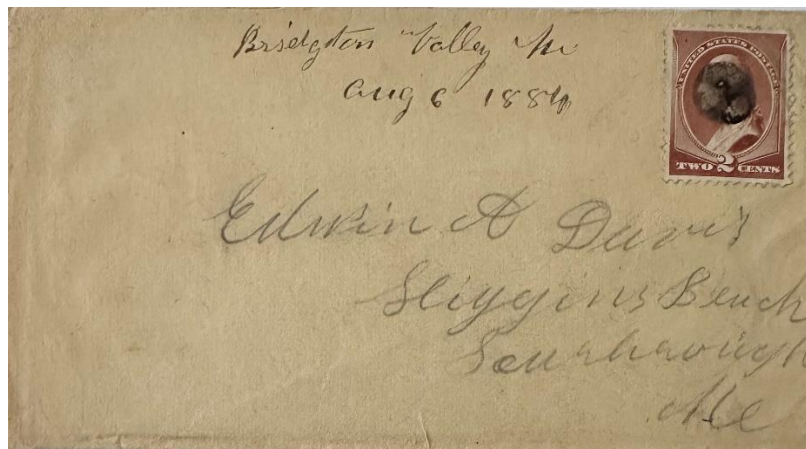 Bridgton Valley Me
Aug 6 1884
UNITED STATES POSTAGE
TWO 2 CENTS
Edwin A Davis
Higgins Beach
Scarborough
Me